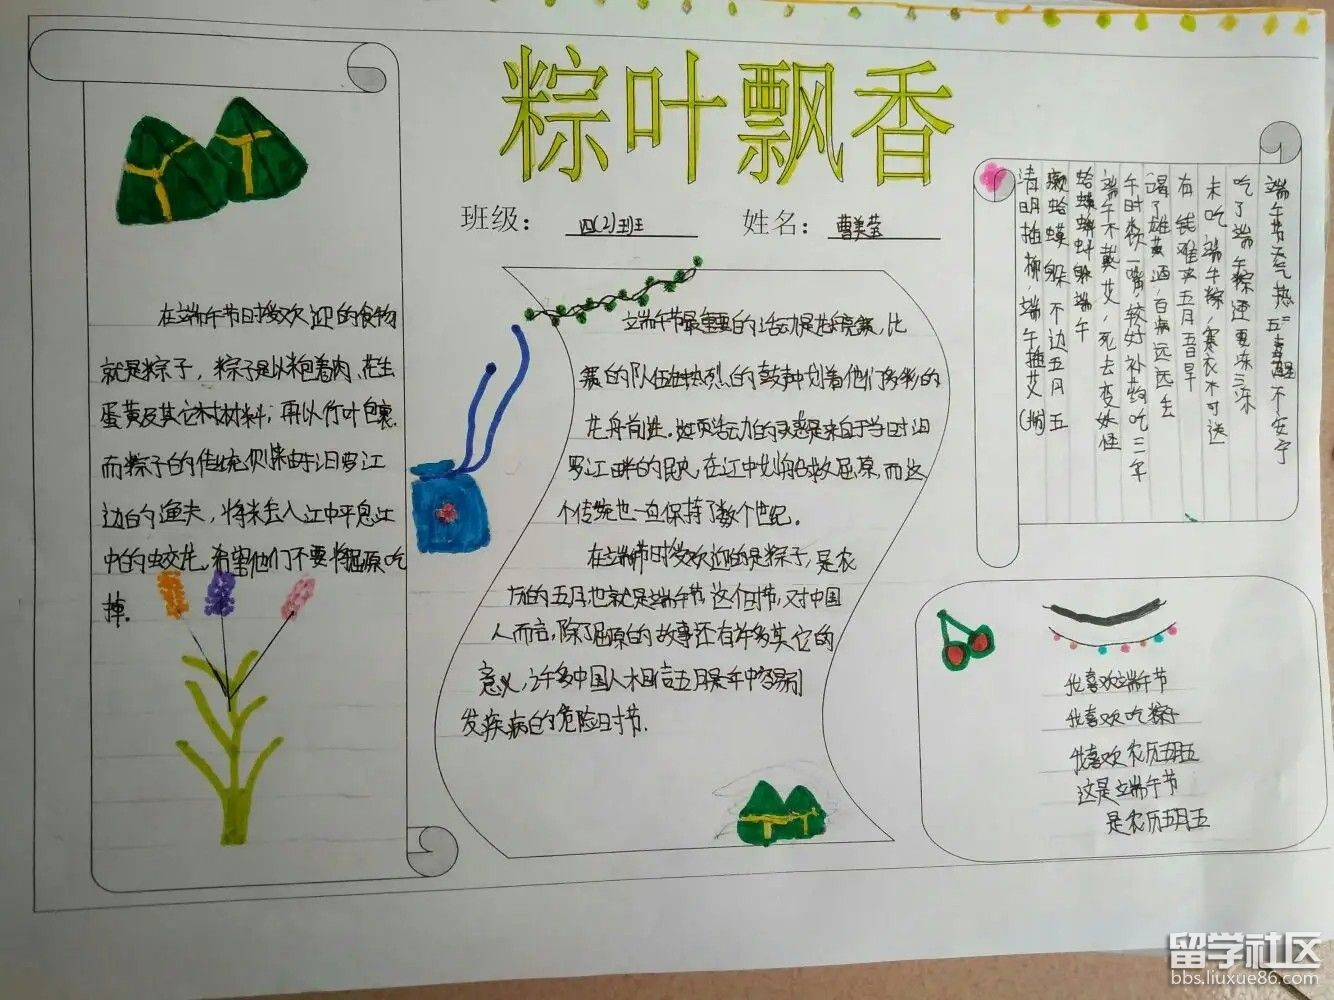 粽叶飘香
班级： 四(2)班 姓名： 曹美莹
在端午节日最受欢迎的食物
就是粽子，粽子是以米包着肉、花生
蛋黄及其它材料；再以竹叶包裹.
而粽子的传统则来由于汨罗江
边的渔夫，将米丢入江中平息江
中的蛟龙，希望他们不要将屈原吃
掉.
端午节最重要的活动是龙舟竞赛，比
赛的队伍在热烈的鼓声中划着他们多彩的
龙舟前进。这项活动的灵感是来自于当时汨
罗江畔的居民，在江中划船救屈原，而这
个传统也一直保持了数个世纪。
在端午节时受欢迎的是粽子，是农
历的五月，也就是端午节这个时节，对中国
人而言，除了屈原的故事还有许多其它的
意义，许多中国人相信五月是年中容易引
发疾病的危险时节.
端午节天气热 五毒醒 不安宁
吃了端午粽 还要冻三冻
未吃端午粽，寒衣不可送
有钱难买五月五日旱
喝了雄黄酒，百病远远丢
午时水饮一嘴，较好补药吃三年
端午不戴艾，死去变妖怪
蛤蟆蝌蚪躲端午
癞蛤蟆躲不过五月五
清明插柳，端午插艾
我喜欢端午节
我喜欢吃粽子
我喜欢农历五月五
这是端午节
是农历五月五
留学社区
bbs.liuxue86.com